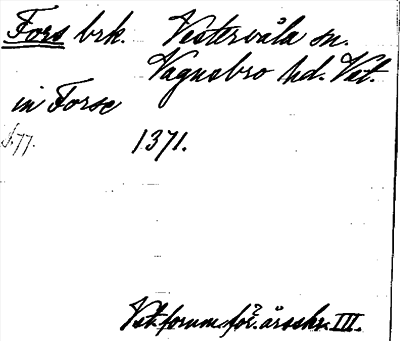 Fors brk. Vestervåla sn.
Vagnsbro hd. Vst.
in Forse
s. 77. 1371.
Vst. fornm. för. årsskr. III.